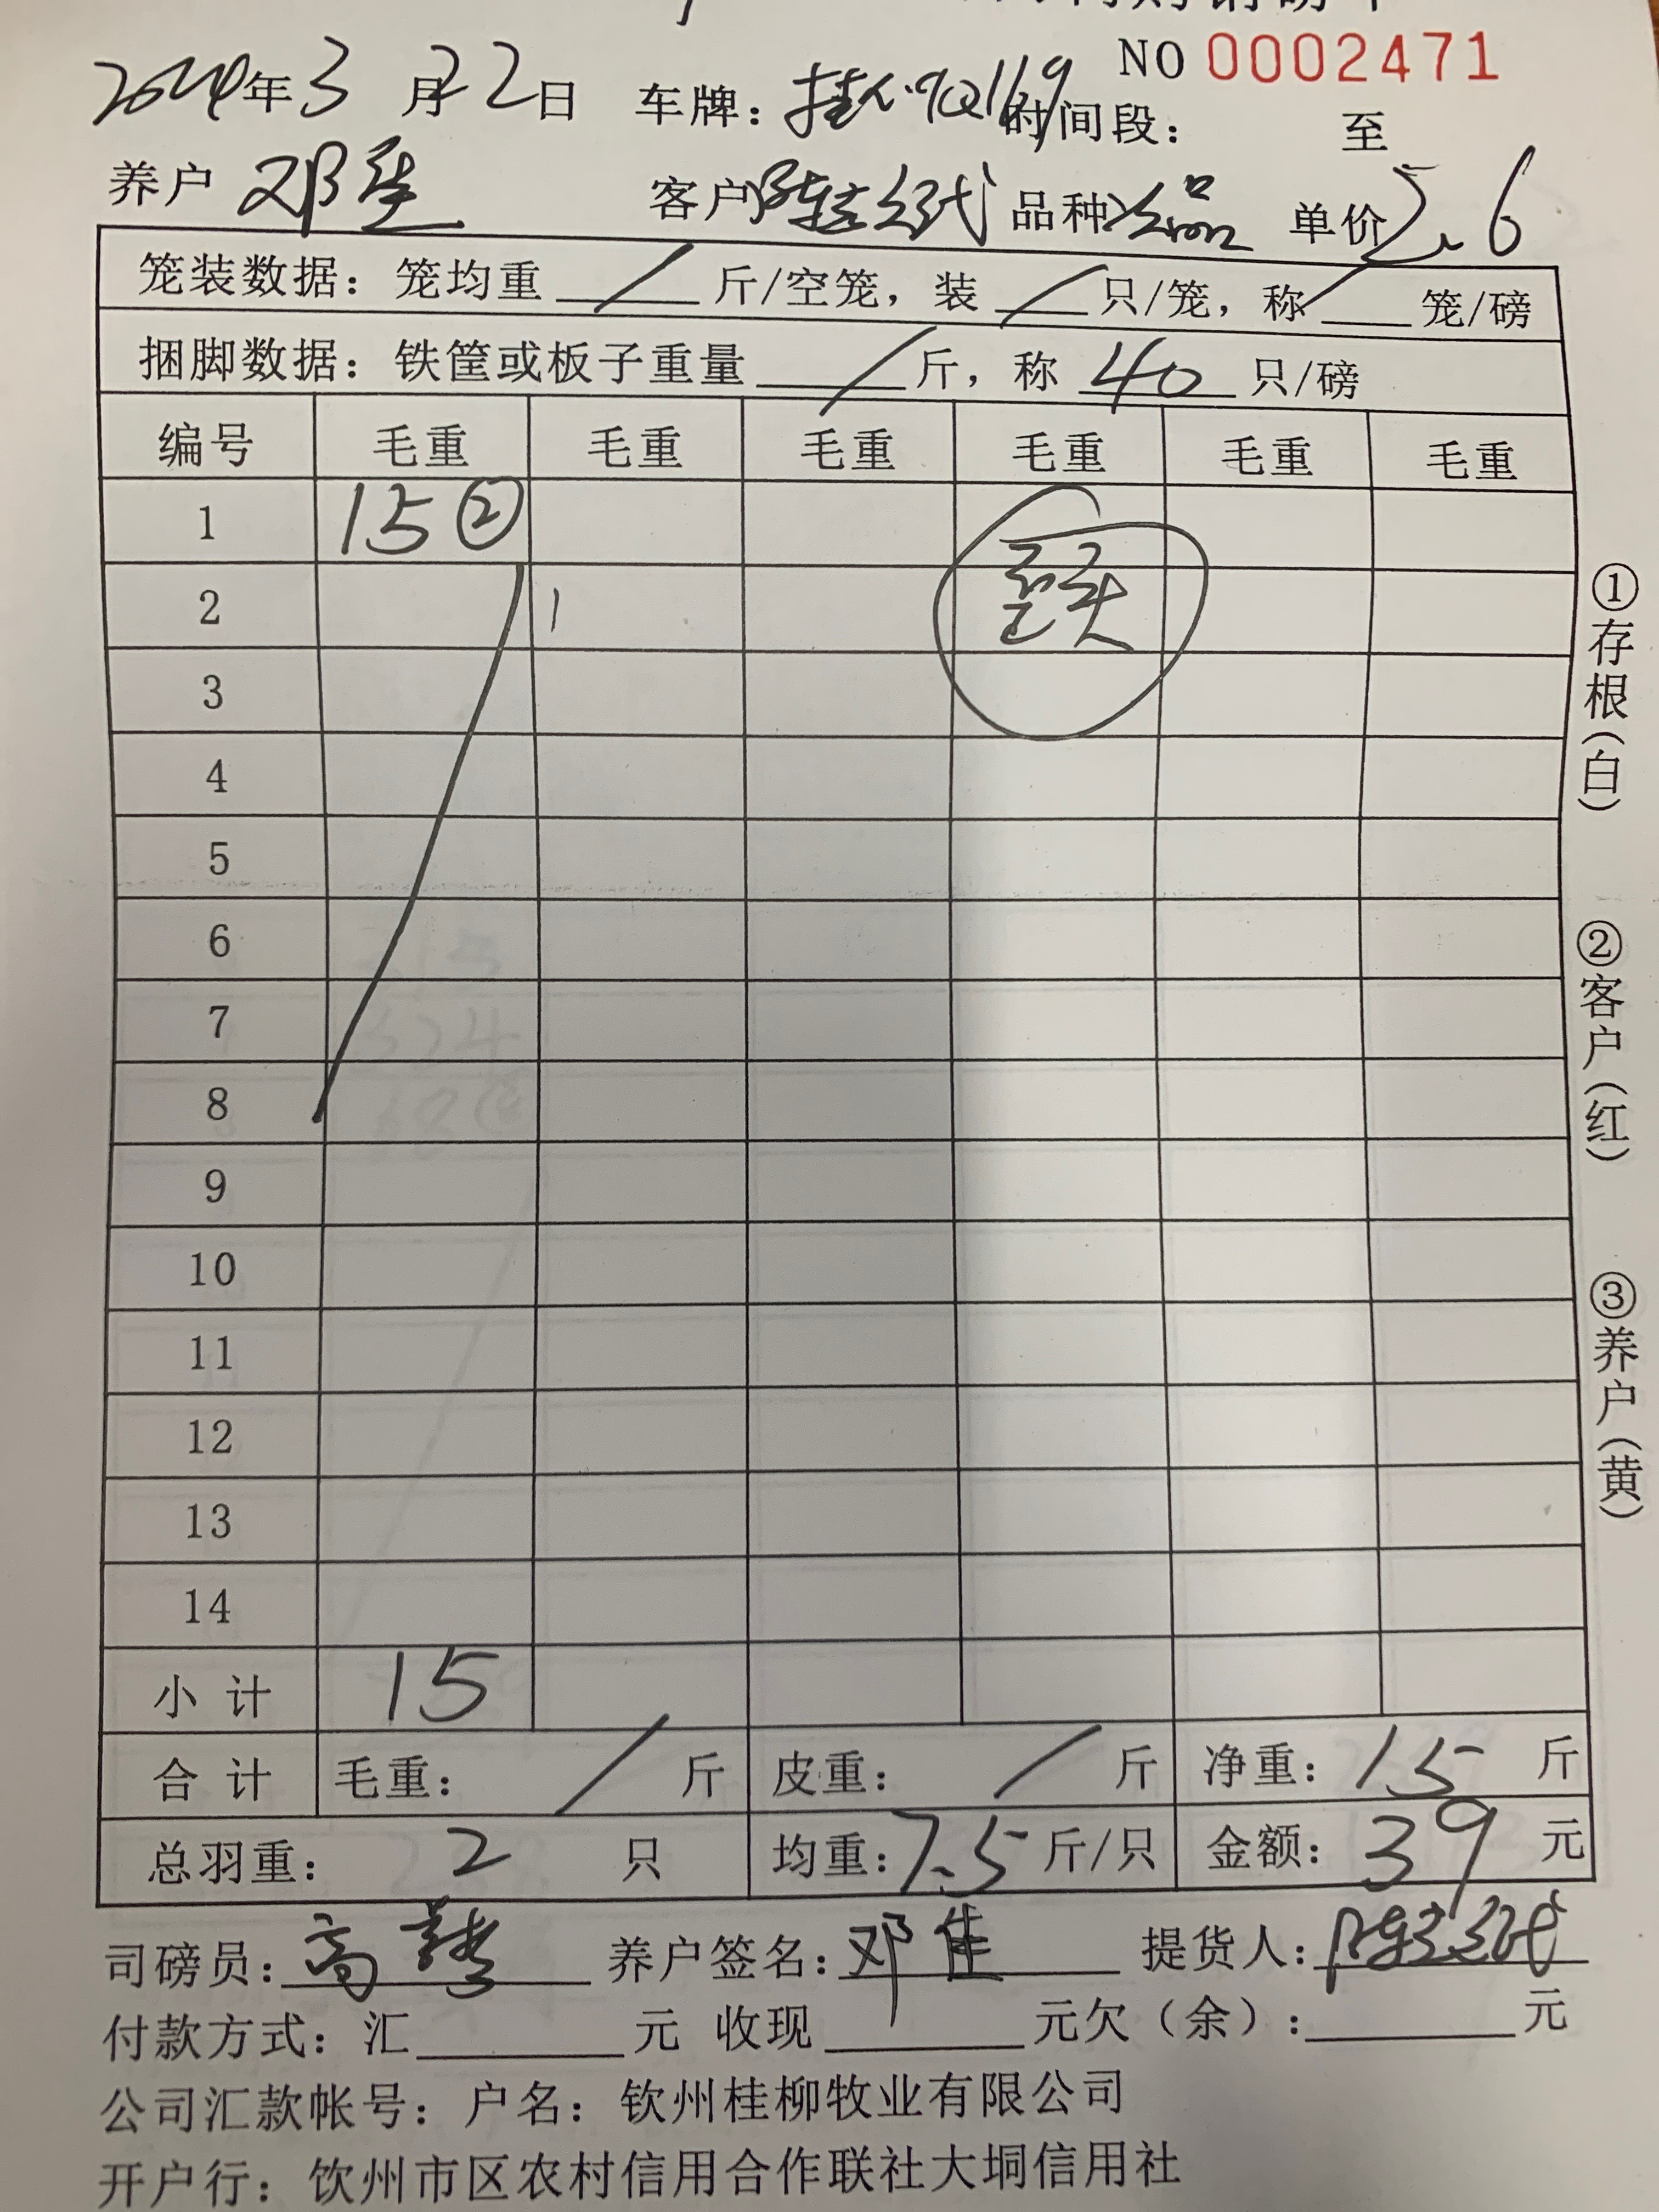 NO 0002471
2024年3月22日 车牌： 时间段： 至
养户 邓 客户 陈 品种 品 单价 2.6
笼装数据：笼均重 / 斤/空笼，装 / 只/笼，称 / 笼/磅
捆脚数据：铁筐或板子重量 / 斤，称 40 只/磅
编号 毛重 毛重 毛重 毛重 毛重 毛重
1 15 ②
2
3
4
5
6
7
8
9
10
11
12
13
14
小计 15
合计 毛重： / 斤 皮重： / 斤 净重：15 斤
总羽重： 2 只 均重：7.5 斤/只 金额：39 元
司磅员：高 养户签名：邓佳 提货人：陈
付款方式：汇 元 收现 元欠（余）： 元
公司汇款帐号：户名：钦州桂柳牧业有限公司
开户行：钦州市区农村信用合作联社大垌信用社
①存根（白）
②客户（红）
③养户（黄）